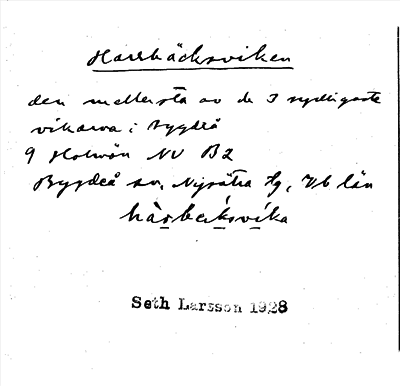 Harrbäcksviken
den mellersta av de 3 sydligaste
vikarna i Bygdeå
9 Holmön NV B2
Bygdeå sn, Nysätra tg, Vb län
hàrbɛksvíka
Seth Larsson 1928